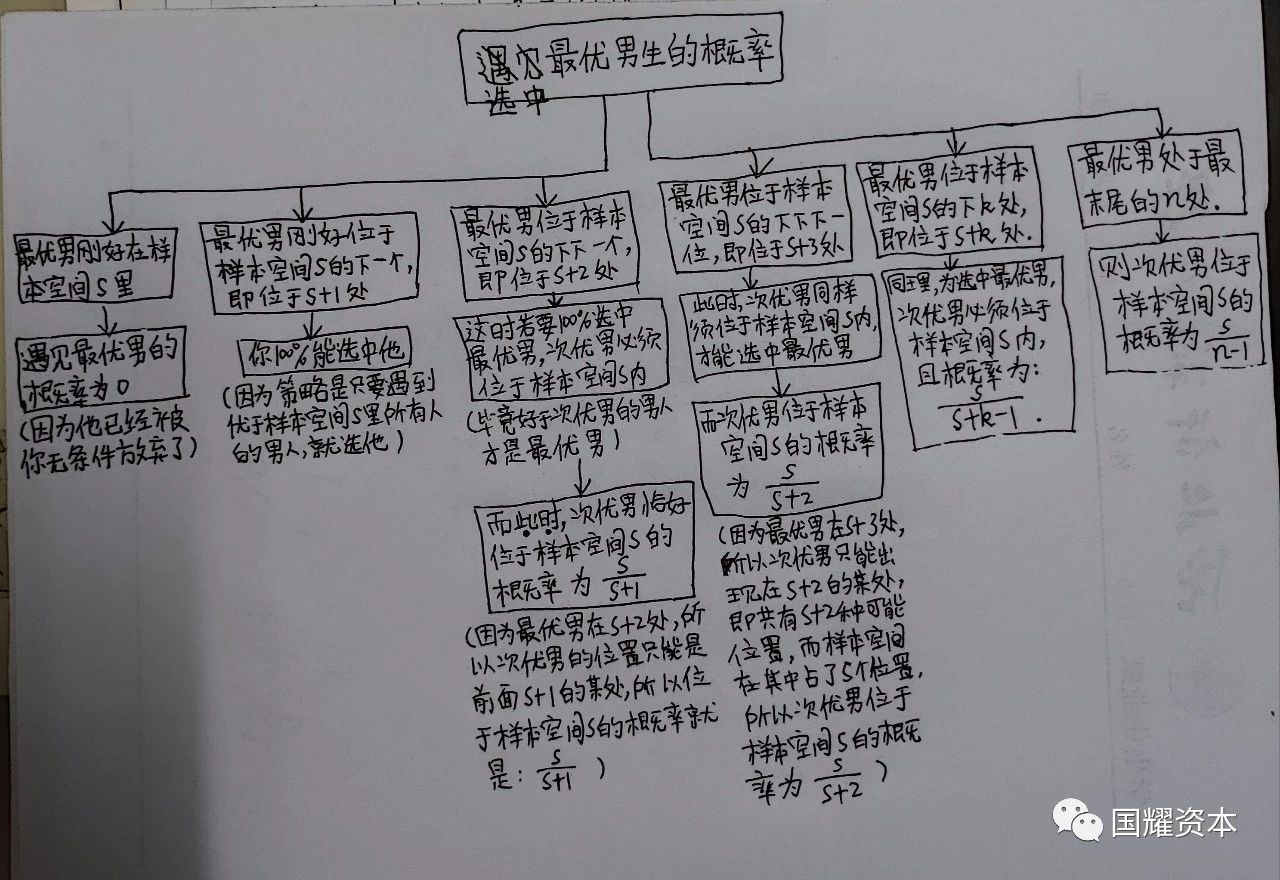 遇见最优男生的概率
选中
最优男刚好在样
本空间S里
遇见最优男的
概率为0
(因为他已经被
你无条件放弃了)
最优男刚好位于
样本空间S的下一个,
即位于S+1处
你100%能选中他
(因为策略是只要遇到
优于样本空间S里所有人
的男人,就选他)
最优男位于样本
空间S的下下一个,
即位于S+2处
这时若要100%选中
最优男,次优男必须
位于样本空间S内
(毕竟好于次优男的男人
才是最优男)
而此时,次优男恰好
位于样本空间S的
概率为 S/S+1
(因为最优男在S+2处,所
以次优男的位置只能是
前面S+1的某处,所以位
于样本空间S的概率就
是: S/S+1 )
最优男位于样本
空间S的下下下一
位,即位于S+3处
此时,次优男同样
须位于样本空间S内,
才能选中最优男
而次优男位于样本
空间S的概率
为 S/S+2
(因为最优男在S+3处,
所以次优男只能出
现在S+2的某处,
即共有S+2种可能
位置,而样本空间
在其中占了S个位置,
所以次优男位于
样本空间S的概
率为 S/S+2 )
最优男位于样本
空间S的下k处,
即位于S+k处.
同理,为选中最优男,
次优男必须位于
样本空间S内,
且概率为:
S/S+k-1 .
最优男处于最
末尾的n处.
则次优男位于
样本空间S的
概率为 S/n-1
国耀资本